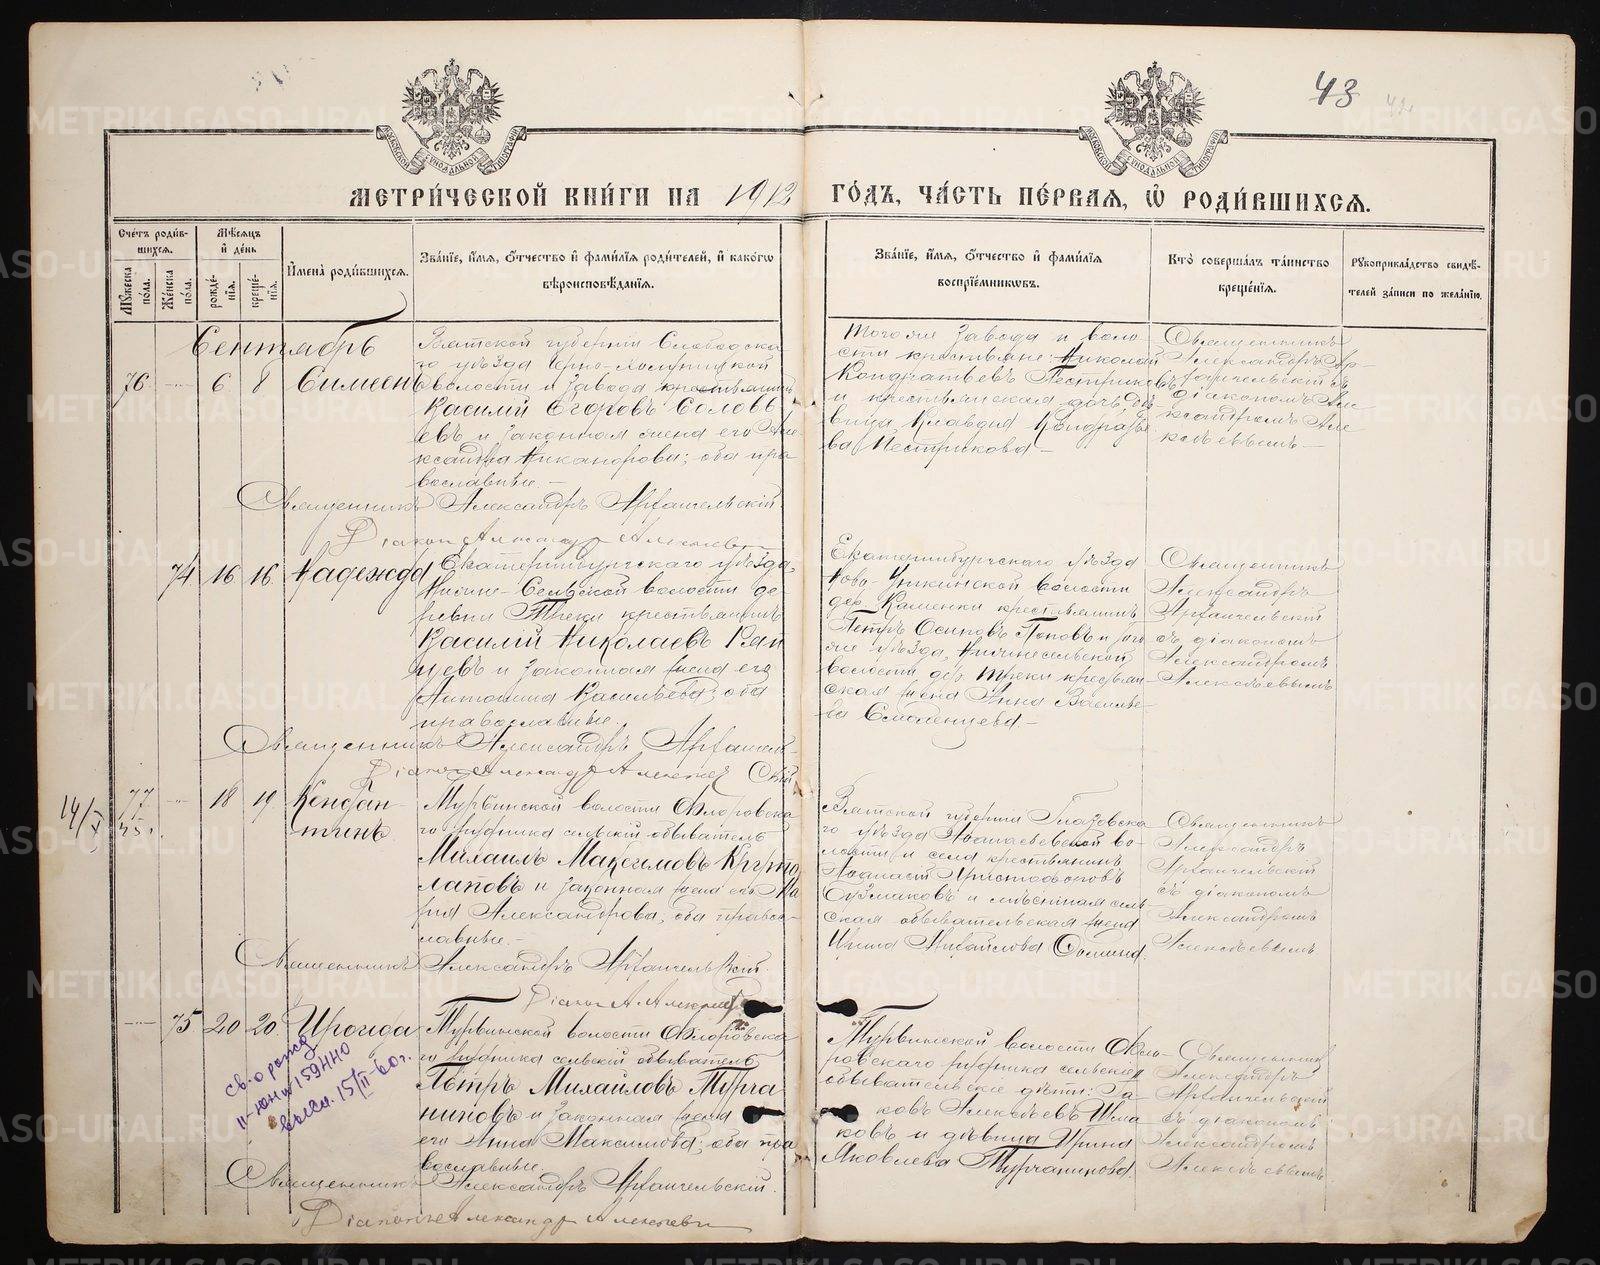 43
МЕТРИ́ЧЕСКОЙ КНИ́ГИ НА 1912 ГО́ДЪ, ЧА́СТЬ ПЕ́РВАЯ, Ѡ РОДИ́ВШИХСЯ.
Сче́тъ роди́в-
шихся.
Мꙋжеска
по́ла.
Же́нска
по́ла.
Мѣ́сяцъ
и҆ де́нь
рожде́-
нїя.
креще́-
нїя.
И҆мена̀ роди́вшихся.
Зва́нїе, и҆́мя, ѻ҆́тчество и҆ фами́лїя роди́телей, и҆ како́гѡ
вѣроисповѣ́данїя.
Зва́нїе, и҆́мя, ѻ҆́тчество и҆ фами́лїя
воспрїе́мникѡвъ.
Кто̀ соверша́лъ та́инство
креще́нїя.
Рꙋкоприкла́дство свидѣ́-
телей за́писи по жела́нїю.
Сентябрь
76 6 8 Симеонъ
Вятской губернiи Слободска-
го уѣзда Черно-Холуницкой
волости и завода крестьянинъ
Василiй Егоровъ Соловь
евъ и законная жена его Але-
ксандра Никанорова; оба пра-
вославные.
Священникъ Александръ Архангельскiй
Дiакон Александр Алексеев
того же завода и воло-
сти крестьяне: Николай
Кондратьевъ Пестриковъ
и крестьянская дочь, дѣ-
вица Клавдия Кондрать
ева Пестрикова
Священникъ
Александръ Ар-
хангельскiй съ
дiакономъ Але-
ксандромъ Але-
ксѣевымъ
74 16 16 Надежда
Екатеринбургскаго уѣзда,
Нижне-Сельской волости де-
ревни Треки крестьянинъ
Василiй Николаевъ
и законная жена его
Антонина Васильева; оба
православные.
Священникъ Александръ Архангель-
скiй
Дiакон Александр Алексеев
Екатеринбургскаго уѣзда
Ново-Уткинской волости
дер. Каменки крестьянинъ
Петръ Осиповъ Поповъ и того
же уѣзда,
волости дер. Треки крестьян-
ская жена Анна Василье-
ва Смоленцева
Священникъ
Александръ
Архангельскiй
съ дiакономъ
Александромъ
Алексѣевымъ
14/X 45г.
77 18 19 Констан-
тинъ
волости Фроловска-
го рудника сельскiй обыватель
Михаилъ Максимовъ Крупо
лаповъ и законная жена его Ма
рия Александрова, оба правос-
лавные.
Священникъ Александръ Архангельскiй
Дiакон А Алексеев
Вятской губернiи Глазовска-
го уѣзда Афанасьевской во-
лости и села крестьянинъ
Афанасiй Христофоровъ
и мѣстная сель-
ская обывательская жена
Ирина Михайлова
Священникъ
Александръ
Архангельскiй
съ дiакономъ
Александромъ
Алексѣевымъ
75 20 20 Ираида
св-о рожд
II-ЮН № 159440
высл. 15/II-60г.
волости Фроловска
го рудника сельскiй обыватель
Петръ Михайловъ Турча
ниновъ и законная жена
его Анна Максимова; оба пра
вославные.
Священникъ Александръ Архангельскiй.
Дiакон Александр Алексеев
волости Фро-
ловскаго рудника сельскiе
обывательскiе дѣти: Яковъ
Алексѣевъ
и дѣвица Ирина
Яковлева Турчанинова.
Священникъ
Александръ
Архангельскiй
съ дiакономъ
Александромъ
Алексѣевымъ
METRIKI.GASO-URAL.RU